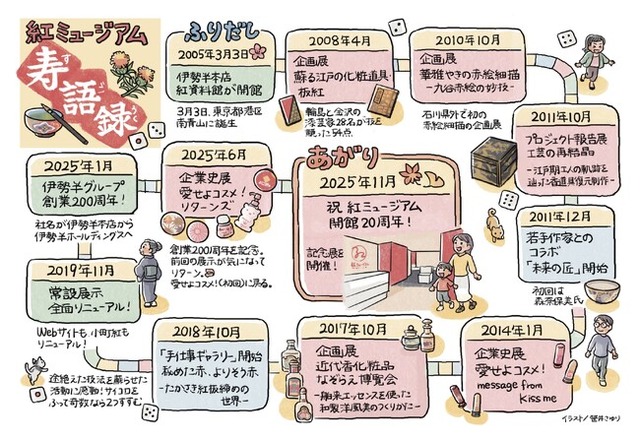 紅ミュージアム
寿語録
すごろく
ふりだし
2005年3月3日
伊勢半本店
紅資料館が開館
3月3日、東京都港区
南青山に誕生
2008年4月
企画展
蘇る江戸の化粧道具・
板紅
輪島と金沢の
漆芸家28名が技を
競った54点
2010年10月
企画展
華雅やきの赤絵細描
―九谷赤絵の妙技―
石川県外で初の
赤絵細描の企画展
2011年10月
プロジェクト報告展
工芸の再結晶
―江戸期工人の軌跡を
辿った香道具復元制作―
2011年12月
若手作家との
コラボ
「未来の匠」開始
初回は
2014年1月
企業史展
愛せよコスメ!
message from
kiss me
2017年10月
企画展
近代香化粧品
なぞらえ博覧会
―舶来エッセンスを使った
和製洋風美のつくりかた―
2018年10月
「手仕事ギャラリー」開始
秘めた赤、よりそう赤
―たかさき紅板締めの
世界―
途絶えた技法を蘇らせた
活動に感動!サイコロを
ふって奇数なら2つすすむ
2019年11月
常設展示
全面リニューアル!
Webサイトも小町紅も
リニューアル!
2025年1月
伊勢半グループ
創業200周年!
社名が伊勢半本店から
伊勢半ホールディングスへ
2025年6月
企業史展
愛せよコスメ!
リターンズ
創業200周年を記念。
前回の展示が気になって
リターン。
愛せよコスメ!(初回)に戻る。
あがり
2025年11月
祝 紅ミュージアム
開館20周年!
記念展を
開催!
イラスト/